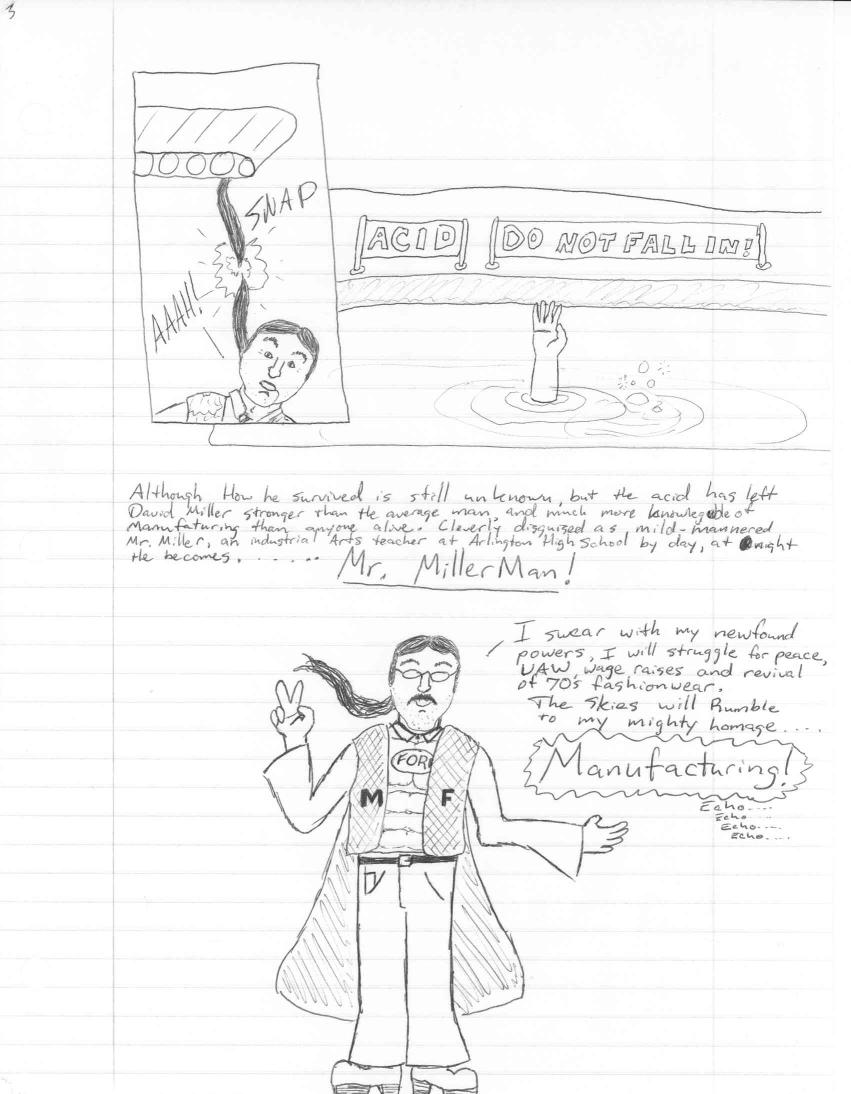 3
SNAP
AAAH!
ACID
DO NOT FALL IN!
Although How he survived is still unknown, but the acid has left
David Miller stronger than the average man, and much more knowlegable of
Manufaturing than anyone alive. Cleverly disguized as, mild-mannered
Mr. Miller, an industrial Arts teacher at Arlington High School by day, at night
He becomes. . . . . . .
Mr. MillerMan!
I swear with my newfound
powers, I will struggle for peace,
UAW, wage raises and revival
of 70's fashionwear.
The Skies will Rumble
to my mighty homage. . . . .
Manufacturing!
Echo.....
Echo.....
Echo.....
Echo.....
FOR
M F